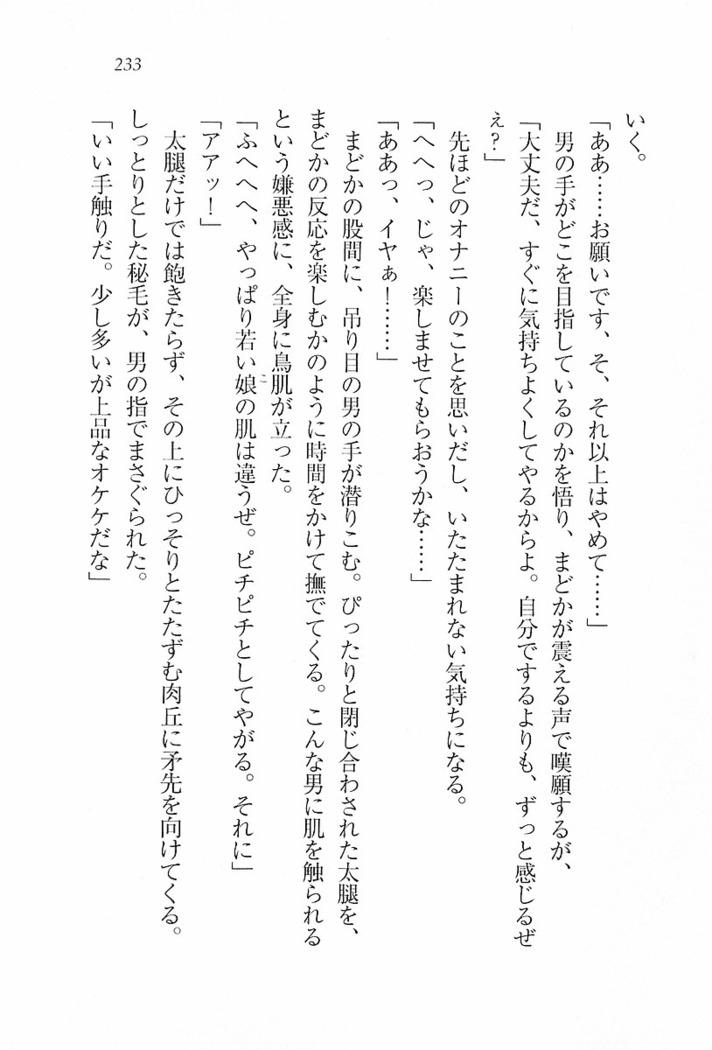 233
いく。
「ああ……お願いです、そ、それ以上はやめて……」
男の手がどこを目指しているのかを悟り、まどかが震える声で嘆願するが、
「大丈夫だ、すぐに気持ちよくしてやるからよ。自分でするよりも、ずっと感じるぜ
ぇ？」
先ほどのオナニーのことを思いだし、いたたまれない気持ちになる。
「へへっ、じゃ、楽しませてもらおうかな……」
「ああっ、イヤぁ！……」
まどかの股間に、吊り目の男の手が潜りこむ。ぴったりと閉じ合わされた太腿を、
まどかの反応を楽しむかのように時間をかけて撫でてくる。こんな男に肌を触られる
という嫌悪感に、全身に鳥肌が立った。
「ふへへへ、やっぱり若い娘この肌は違うぜ。ピチピチとしてやがる。それに」
「アアッ！」
太腿だけでは飽きたらず、その上にひっそりとたたずむ肉丘に矛先を向けてくる。
しっとりとした秘毛が、男の指でまさぐられた。
「いい手触りだ。少し多いが上品なオケケだな」